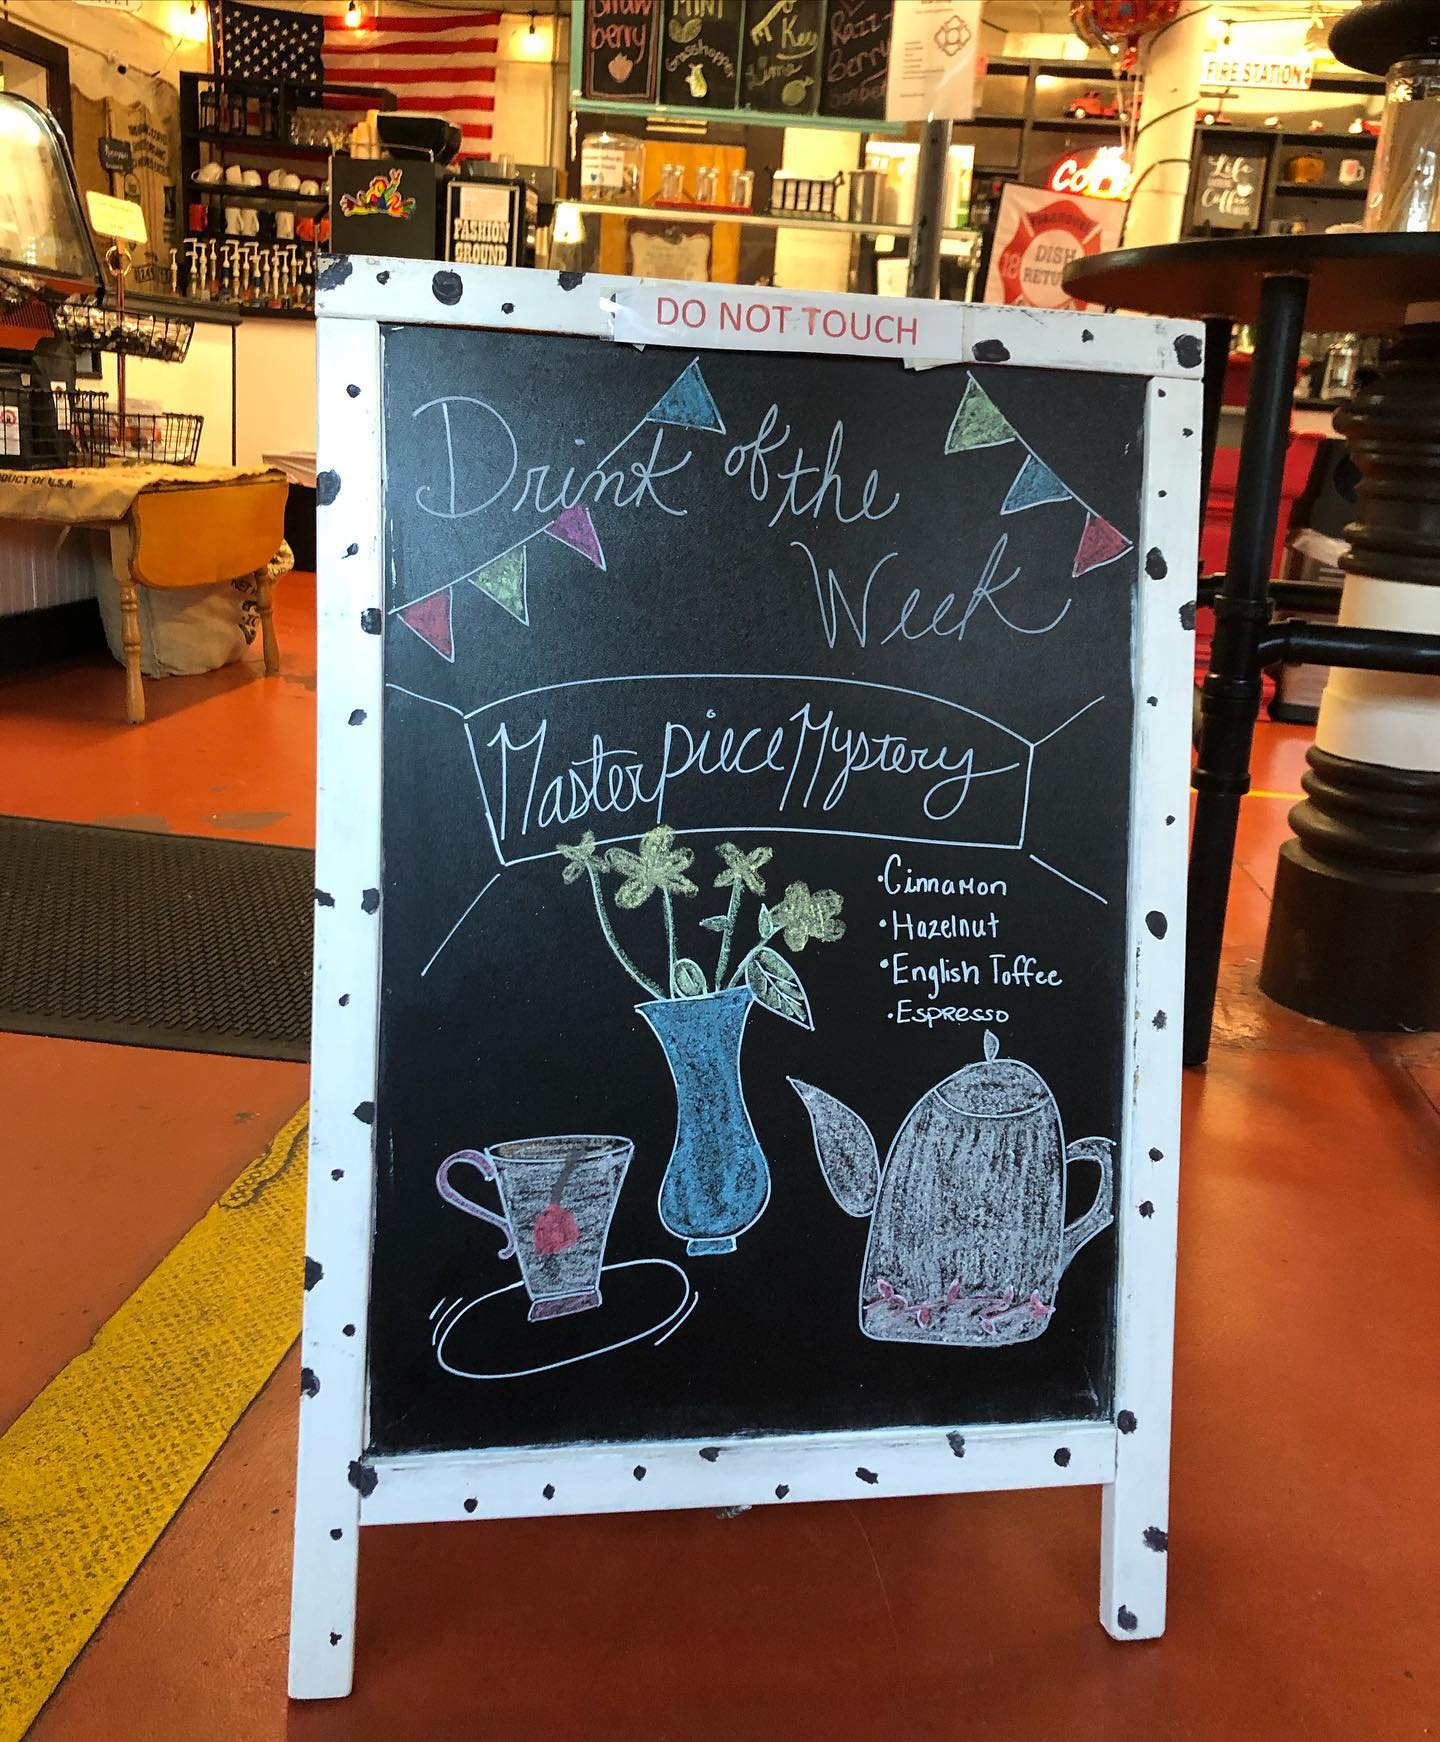 Straw
berry
MINT
Grasshopper
Key
Lime
Razz-
Berry
Sorbet
FIRE STATION
Life
Coffee
FASHION
GROUND
18
DISH
RETU
PRODUCT OF U.S.A.
DO NOT TOUCH
Drink of the
Week
Masterpiece Mystery
• Cinnamon
• Hazelnut
• English Toffee
• Espresso